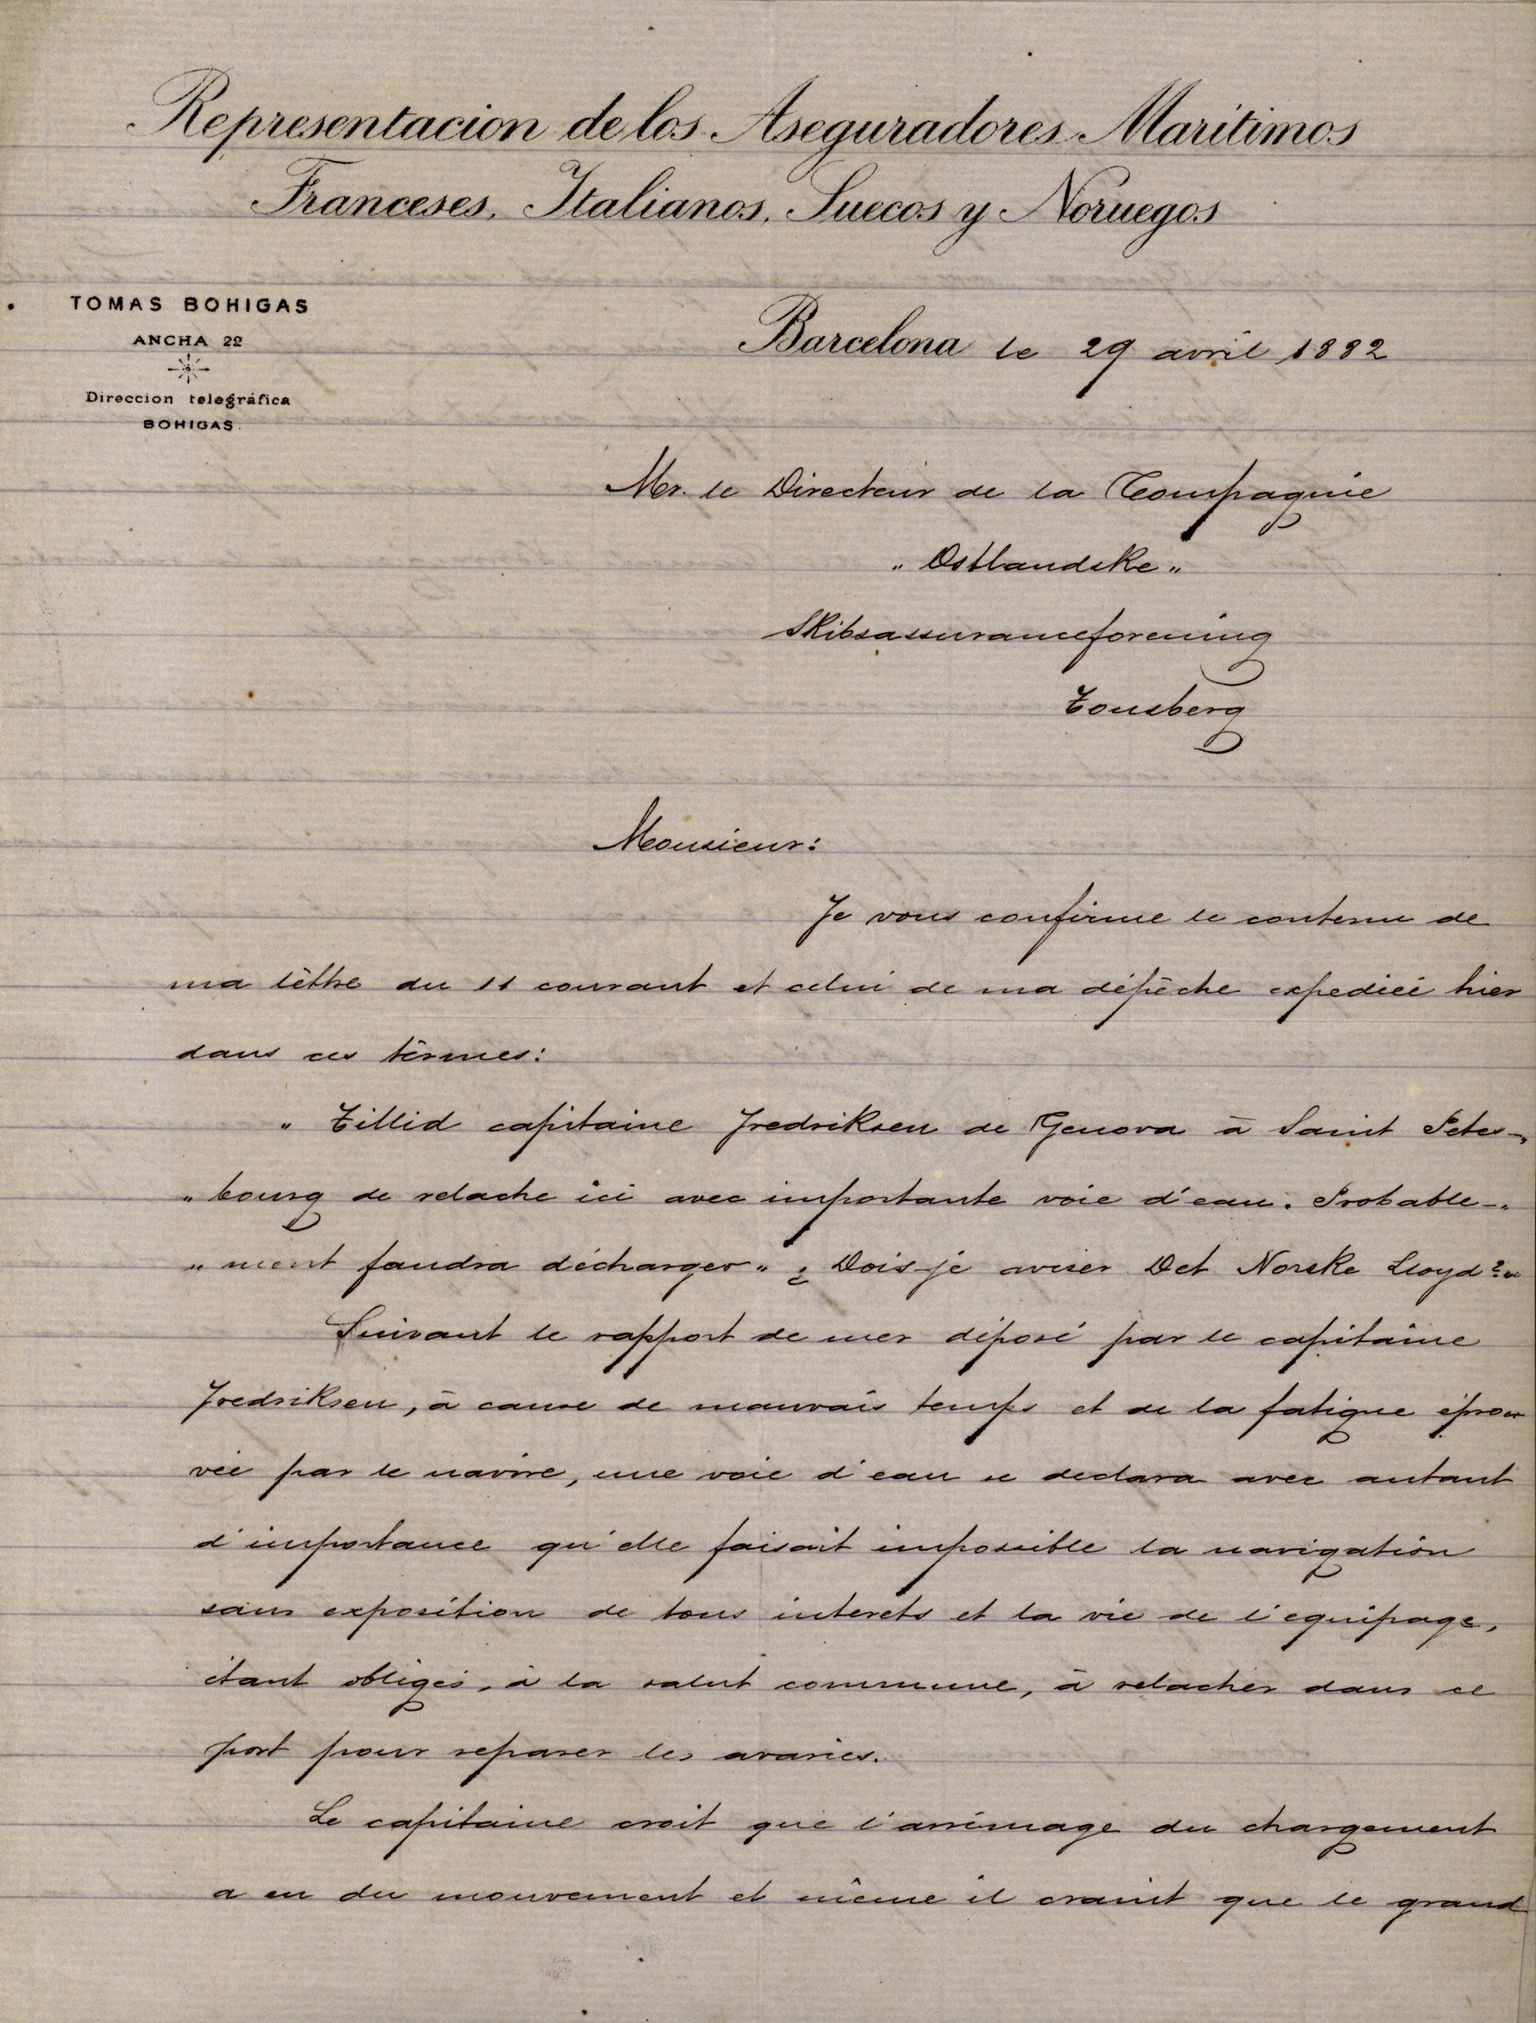 Representacion de los Aseguradores Maritimos
Franceses, Italianos, Suecos y Noruegos
TOMAS BOHIGAS
ANCHA 22
Direccion telegráfica
BOHIGAS.
Barcelona le 29 avril 1882
Mr. le Directeur de la Compagnie
"Ostlandske"
Skibsassuranceforening
Tonsberg
Monsieur:
Je vous confirme le contenu de
ma lêttre du 11 courant et celui de ma dépêche expediée hier
dans ces têrmes:
" Tillid capitaine Fredriksen de Genova à Saint Peters-"
" bourg de relache ici avec importante voie d'eau. Probable-"
" ment faudra décharger" ¿ Dois-je aviser Det Norske Lloyd?"
Suivant le rapport de mer déposé par le capitaine
Fredriksen, à cause de mauvais temps et de la fatigue éprou
vée par le navire, une voie d'eau se declara avec autant
d'importance qu'elle faisait impossible la navigation
sans exposition de tous interets et la vie de l'equipage,
étant obligés, à la salut commune, à relacher dans ce
port pour reparer les avaries.
Le capitaine croit que l'arrimage du chargement
a eu du mouvement et même il craint que le grand